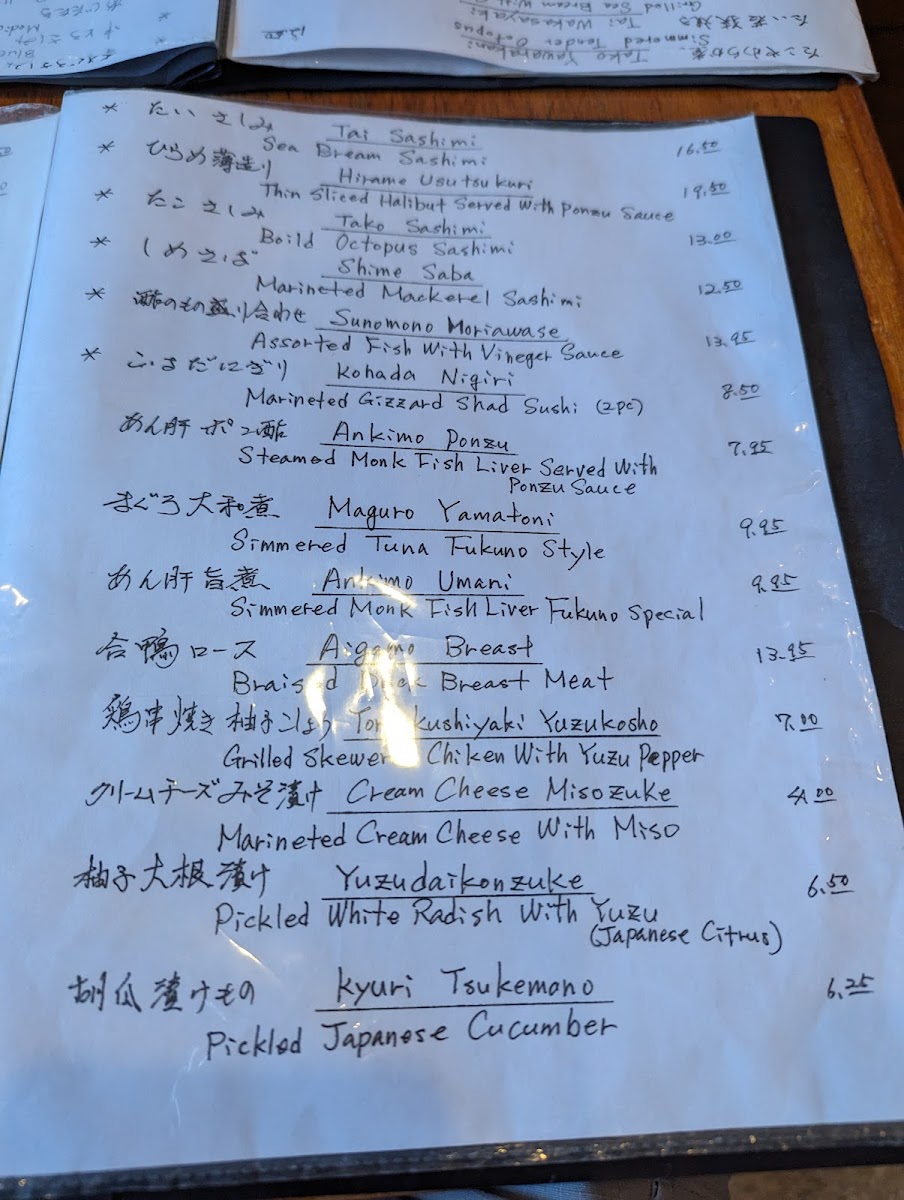 * たい さしみ Tai Sashimi 16.50
Sea Bream Sashimi
* ひらめ薄造り Hirame Usutsukuri 19.50
Thin Sliced Halibut Served With Ponzu Sauce
* たこ さしみ Tako Sashimi 13.00
Boild Octopus Sashimi
* しめさば Shime Saba 12.50
Marineted Mackerel Sashimi
* 酢のもの盛り合わせ Sunomono Moriawase 13.95
Assorted Fish With Vineger Sauce
* こはだにぎり Kohada Nigiri 8.50
Marineted Gizzard Shad Sushi (2pc)
あん肝 ポン酢 Ankimo Ponzu 7.95
Steamed Monk Fish Liver Served With
Ponzu Sauce
まぐろ大和煮 Maguro Yamatoni 9.95
Simmered Tuna Fukuno Style
あん肝旨煮 Ankimo Umani 9.95
Simmered Monk Fish Liver Fukuno Special
合鴨ロース Aigamo Breast 13.95
Braised Duck Breast Meat
鶏串焼き 柚子こしょう Kushiyaki Yuzukosho 7.00
Grilled Skewer Chiken With Yuzu Pepper
クリームチーズみそ漬け Cream Cheese Misozuke 4.00
Marineted Cream Cheese With Miso
柚子大根漬け Yuzudaikonzuke 6.50
Pickled White Radish With Yuzu
(Japanese Citrus)
胡瓜漬けもの Kyuri Tsukemono 6.25
Pickled Japanese Cucumber
たこやわらか煮 Tako Yawarakani
Simmered Tender Octopus 12.50
たい若狭焼き Tai Wakasayaki
Grilled Sea Bream With